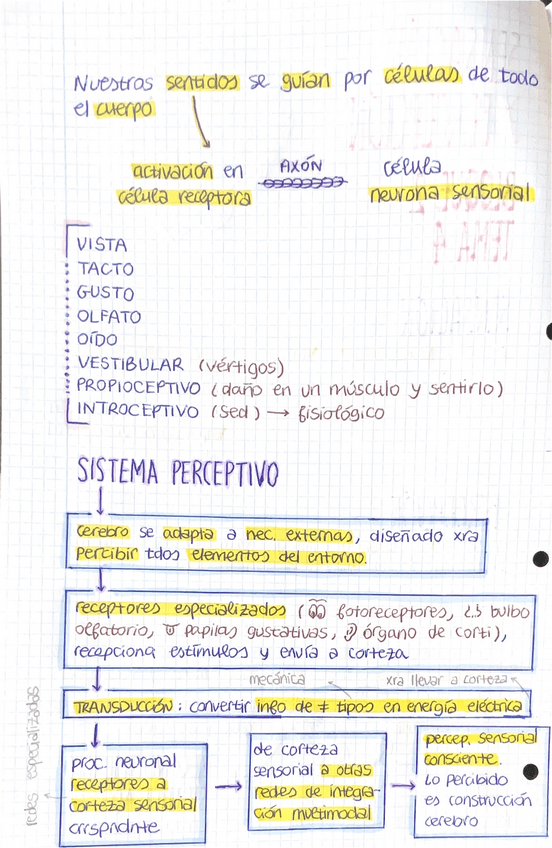 Nuestros sentidos se guían por células de todo
el cuerpo
activación en AXÓN célula
célula receptora neurona sensorial
VISTA
TACTO
GUSTO
OLFATO
OÍDO
VESTIBULAR (vértigos)
PROPIOCEPTIVO (daño en un músculo y sentirlo)
INTROCEPTIVO (sed) → fisiológico
SISTEMA PERCEPTIVO
cerebro se adapta a nec. externas, diseñado xra
percibir tdos elementos del entorno.
receptores especializados ( fotoreceptores, bulbo
olfatorio, papilas gustativas, órgano de corti),
recepciona estímulos y envía a corteza
mecánica xra llevar a corteza
TRANSDUCCIÓN: convertir info de ≠ tipos en energía eléctrica
redes especializadas
proc. neuronal
receptores a
corteza sensorial
crrspndnte
de corteza
sensorial a otras
redes de integra-
ción multimodal
percep. sensorial
consciente.
Lo percibido
es construcción
cerebro